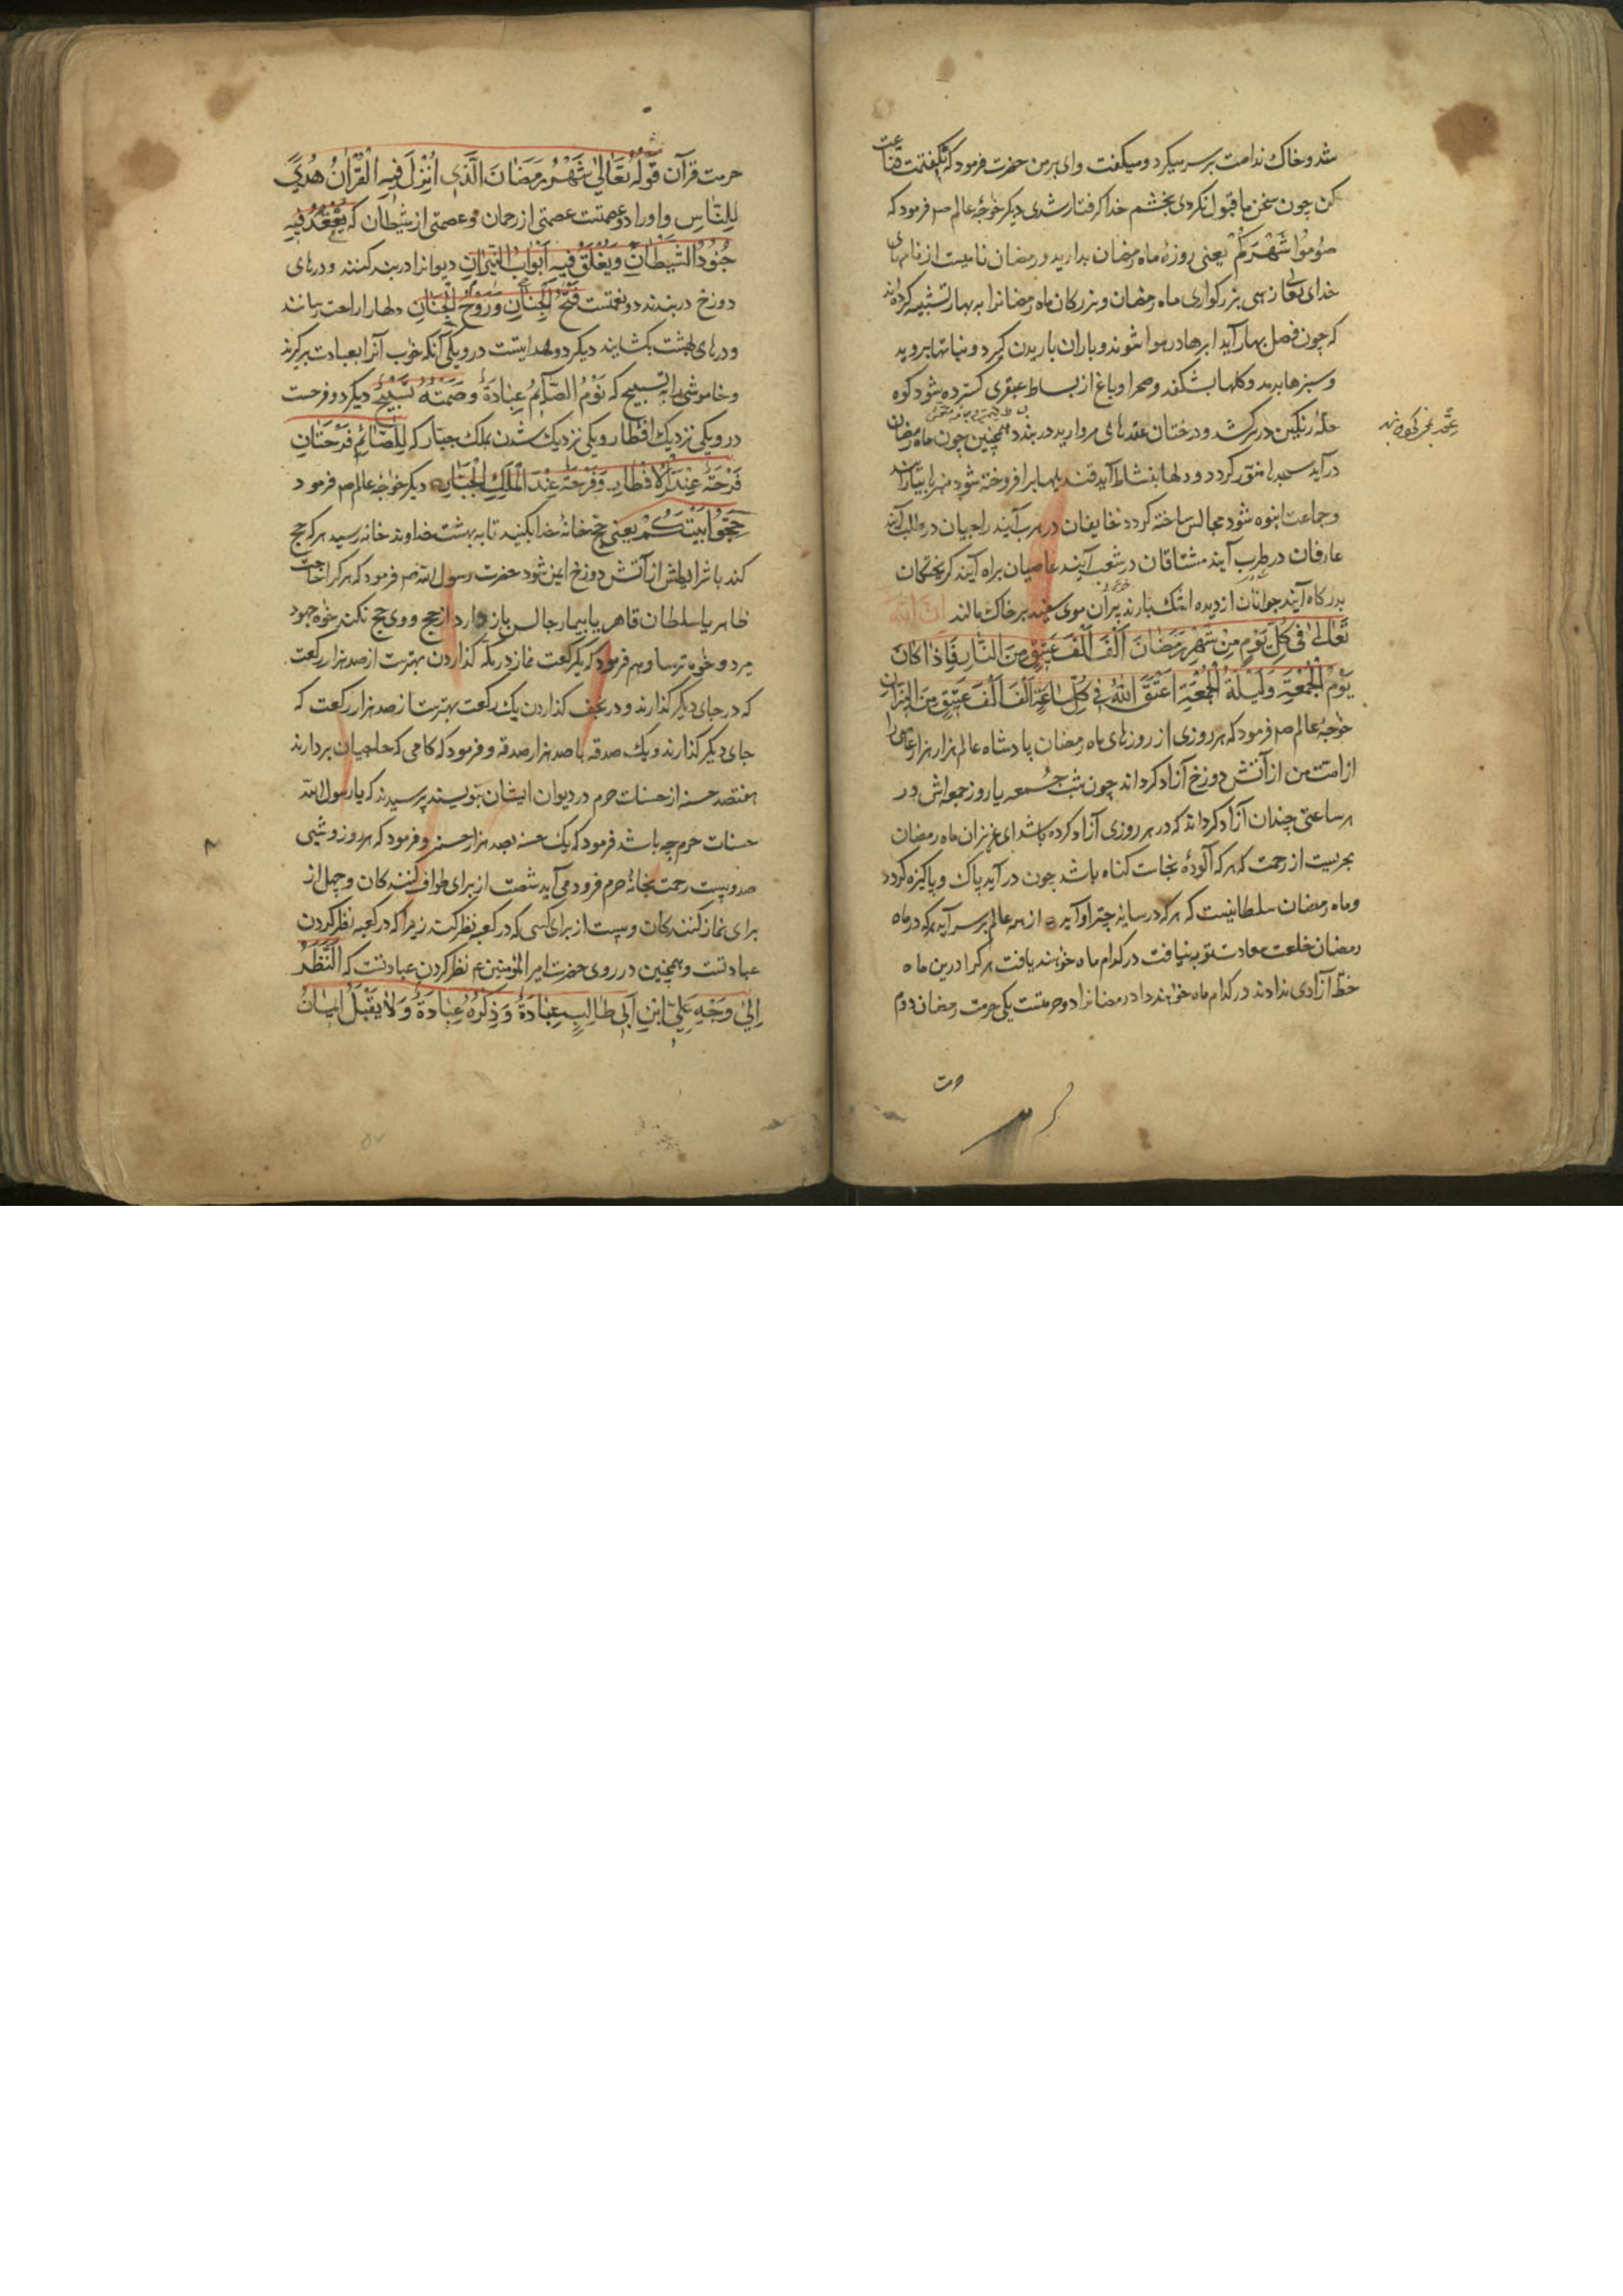 شد و خاک ندامت بر سر میکرد و میکفت وای بر من حضرت فرمود که نکفتمت قناعت
کن چون سخن ما قبول نکردی بخشم خدا کرفتار شدی دیکر خواجهٔ عالم ص فرمود که
صُومُوا شَهْرَکُمْ یعنی روزهٔ ماه رمضان بدارید و رمضان نامیست از نامهای
خدای تعالی زهی بزرکواری ماه رمضان و بزرکان ماه رمضانرا به بهار تشبیه کرده‌اند
که چون فصل بهار آید ابرها در هوا شوند و باران باریدن کیرد و نباتها بروید
و سبزها بدمد و کلها بشکفد و صحرا و باغ از بساط عبقری کسترده شود کوه
حلهٔ رنکین در بر کشد و درختان عقدهای مروارید در بندد همچنین چون ماه رمضان
در آید مسجدها منوّر کردد و دلها بنشاط آید قندیلها بر افروخته شود منبرها بیارایند
و جماعت انبوه شود مجالس ساخته کردد خایفان در هرب آیند راجیان در طلب آیند
عارفان در طرب آیند مشتاقان در شعب آیند عاصیان براه آیند کریختکان
بدرکاه آیند جوانان از دیده اشک بارند پیران موی سفید بر خاک مالند اِنَّ اللّٰهَ
تَعٰالیٰ فی کُلِّ یَوْمٍ مِنْ شَهْرِ رَمَضٰانَ اَلْفَ اَلْفَ عَتیقٍ مِنَ النّٰارِ فَاِذٰا کٰانَ
یَوْمُ الْجُمْعَةِ وَ لَیْلَةُ الْجُمْعَةِ اَعْتَقَ اللّٰهُ فی کُلِّ سٰاعَةٍ اَلْفَ اَلْفَ عَتیقٍ مِنَ النیّرٰانِ
خواجهٔ عالم ص فرمود که هر روزی از روزهای ماه رمضان پادشاه عالم هزار هزار عاصی را
از امّت من از آتش دوزخ آزاد کرداند چون شب جمعه یا روز جمعه‌اش در
هر ساعتی چندان آزاد کرداند که در هر روزی آزاد کرده باشد ای عزیزان ماه رمضان
بحریست از رحمت که هر که آلودهٔ نجاست کناه باشد چون در آید پاک و پاکیزه کردد
و ماه رمضان سلطانیست که هر که در سایهٔ چتر او آید از همه عالم بر سر آید هر که در ماه
رمضان خلعت سعادت توبه نیافت در کدام ماه خواهند یافت هر کرا درین ماه
خطّ آزادی ندادند در کدام ماه خواهند داد رمضانرا دو حرمتست یکی حرمت رمضان دوم
حرمت
حرمت قرآن قَوْلُهُ تَعٰالیٰ شَهْرُ رَمَضٰانَ الَّذی اُنْزِلَ فیهِ الْقُرْاٰنُ هُدیً
لِلنّٰاسِ و او را دو عصمتست عصمتی از رحمان و عصمتی از شیطان که یُعْقَدُ فیهِ
جُنُودُ الشَّیْطٰانِ وَ یُغْلَقُ فیهِ اَبْوٰابُ النّیرٰانِ دیوانرا در بند کنند و درهای
دوزخ در بندند دو نعمتست فَتْحُ الْجِنٰانِ وَ رَوْحُ الْجَنٰانِ دلها را راحت رسانند
و درهای بهشت بکشایند دیکر دو هدایتست درو یکی آنکه خوب آنرا بعبادت بر کیرند
و خاموشی را به تسبیح که نَوْمُ الصّٰآئِمِ عِبٰادَةٌ وَ صَمْتُهُ تَسْبیحٌ دیکر دو فرحست
درو یکی نزدیک افطار و یکی نزدیک شدن بملک جبّار که لِلصّٰائِمِ فَرْحَتٰانِ
فَرْحَةٌ عِنْدَ الْاِفْطٰارِ وَ فَرْحَةٌ عِنْدَ الْمَلِکِ الْجَبّٰارِ دیکر خواجهٔ عالم ص فرمود
حَجُّوا بَیْتَکُمْ یعنی حجّ خانهٔ خدا بکنید تا به بهشت خداوند خانه رسید هر که حج
کند با شرایطش از آتش دوزخ ایمن شود حضرت رسول اللّه ص فرمود که هر کرا حاجت
ظاهر یا سلطان قاهر یا بیمار جالس باز دارد از حج و وی حج نکند خواه جهود
میرد و خواه ترسا و هم فرمود که یکرکعت نماز در مکّه کذاردن بهترست از صد هزار رکعت
که در جای دیکر کذارند و در نجف کذاردن یک رکعت بهترست از صد هزار رکعت که
جای دیکر کذارند و یک صدقه با صد هزار صدقه و فرمود که کامی که حاجیان بردارند
هفتصد حسنه از حسنات حرم در دیوان ایشان بنویسند پرسیدند که یا رسول اللّه
حسنات حرم چه باشد فرمود که یک حسنه بصد هزار حسنه و فرمود که هر روز و شبی
صد و بیست رحمت بخانهٔ حرم فرود می‌آید شصت از برای طواف کنندکان و چهل از
برای نماز کنندکان و بیست از برای کسی که در کعبه نظر کند زیرا که در کعبه نظر کردن
عبادتست و همچنین در روی حضرت امیر المؤمنین ع نظر کردن عبادتست که اَلنَّظَرُ
اِلیٰ وَجْهِ عَلیِّ ابْنِ اَبی طٰالِبٍ عِبٰادَةٌ وَ ذِکْرُهُ عِبٰادَةٌ وَ لٰا یُقْبَلُ ایمٰانُ